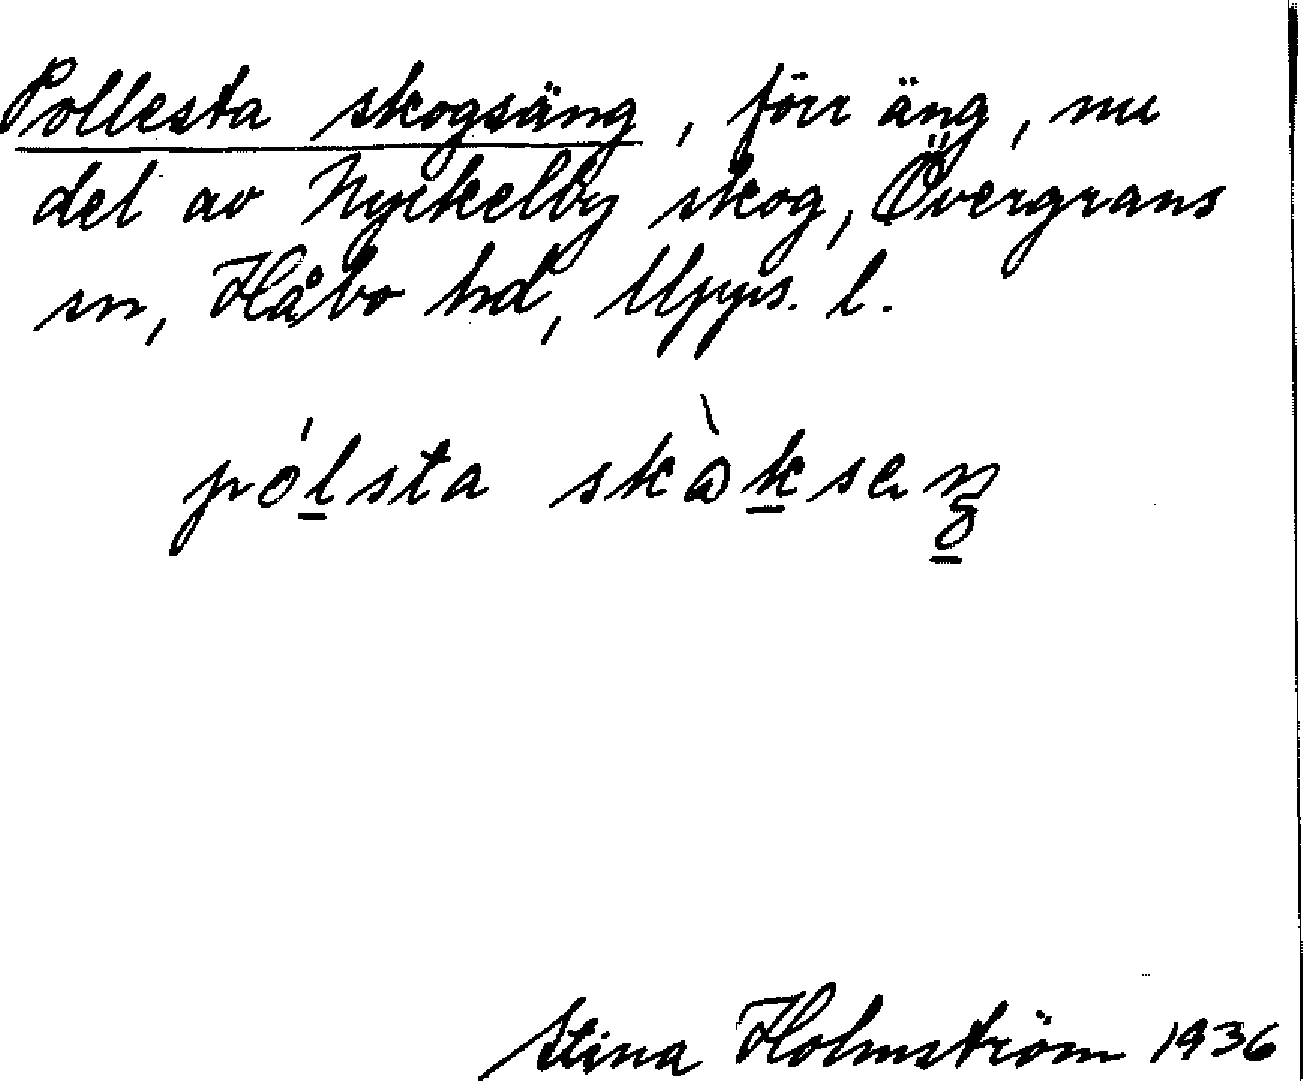 Pollesta skogsäng, förr äng, nu
del av Nyckelby skog, Övergrans
sn, Håbo hd, Upps. l.
pólsta skàkseŋ
Stina Holmström 1936